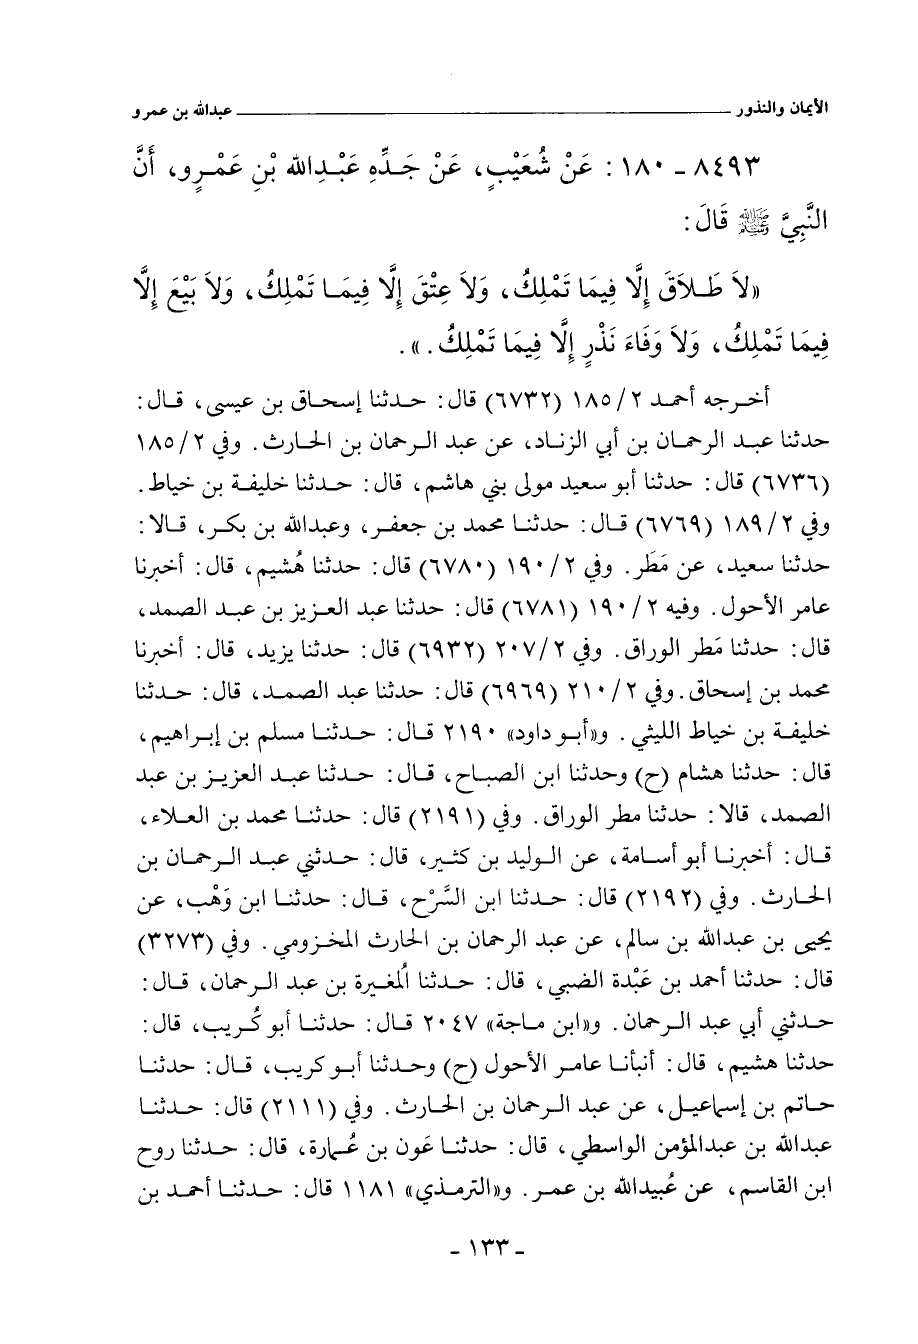 الأيمان والنذور ــــــــــــــــــــ عبدالله بن عمرو
٨٤٩٣ - ١٨٠ : عَنْ شُعَيْبٍ، عَنْ جَدِّهِ عَبْدِالله بْنِ عَمْرٍو، أَنَّ
النَّبِيَّ ﷺ قَالَ:
«لاَ طَلاَقَ إِلَّا فِيمَا تَمْلِكُ، وَلاَ عِتْقَ إِلَّا فِيمَا تَمْلِكُ، وَلاَ بَيْعَ إِلَّا
فِيمَا تَمْلِكُ، وَلاَ وَفَاءَ نَذْرٍ إِلَّا فِيمَا تَمْلِكُ.».
أخرجه أحمد ٢/ ١٨٥ (٦٧٣٢) قال: حدثنا إسحاق بن عيسى، قال:
حدثنا عبد الرحمان بن أبي الزناد، عن عبد الرحمان بن الحارث. وفي ٢/ ١٨٥
(٦٧٣٦) قال: حدثنا أبو سعيد مولى بني هاشم، قال: حدثنا خليفة بن خياط.
وفي ٢/ ١٨٩ (٦٧٦٩) قال: حدثنا محمد بن جعفر، وعبدالله بن بكر، قالا:
حدثنا سعيد، عن مَطَر. وفي ٢/ ١٩٠ (٦٧٨٠) قال: حدثنا هُشيم، قال: أخبرنا
عامر الأحول. وفيه ٢/ ١٩٠ (٦٧٨١) قال: حدثنا عبد العزيز بن عبد الصمد،
قال: حدثنا مَطر الوراق. وفي ٢/ ٢٠٧ (٦٩٣٢) قال: حدثنا يزيد، قال: أخبرنا
محمد بن إسحاق. وفي ٢/ ٢١٠ (٦٩٦٩) قال: حدثنا عبد الصمد، قال: حدثنا
خليفة بن خياط الليثي. و«أبو داود» ٢١٩٠ قال: حدثنا مسلم بن إبراهيم،
قال: حدثنا هشام (ح) وحدثنا ابن الصباح، قال: حدثنا عبد العزيز بن عبد
الصمد، قالا: حدثنا مطر الوراق. وفي (٢١٩١) قال: حدثنا محمد بن العلاء،
قال: أخبرنا أبو أسامة، عن الوليد بن كثير، قال: حدثني عبد الرحمان بن
الحارث. وفي (٢١٩٢) قال: حدثنا ابن السَّرْح، قال: حدثنا ابن وَهْب، عن
يحيى بن عبدالله بن سالم، عن عبد الرحمان بن الحارث المخزومي. وفي (٣٢٧٣)
قال: حدثنا أحمد بن عَبْدة الضبي، قال: حدثنا المُغيرة بن عبد الرحمان، قال:
حدثني أبي عبد الرحمان. و«ابن ماجة» ٢٠٤٧ قال: حدثنا أبو كُريب، قال:
حدثنا هشيم، قال: أنبأنا عامر الأحول (ح) وحدثنا أبو كريب، قال: حدثنا
حاتم بن إسماعيل، عن عبد الرحمان بن الحارث. وفي (٢١١١) قال: حدثنا
عبدالله بن عبدالمؤمن الواسطي، قال: حدثنا عَون بن عُمارة، قال: حدثنا روح
ابن القاسم، عن عُبيدالله بن عمر. و«الترمذي» ١١٨١ قال: حدثنا أحمد بن
- ١٣٣ -